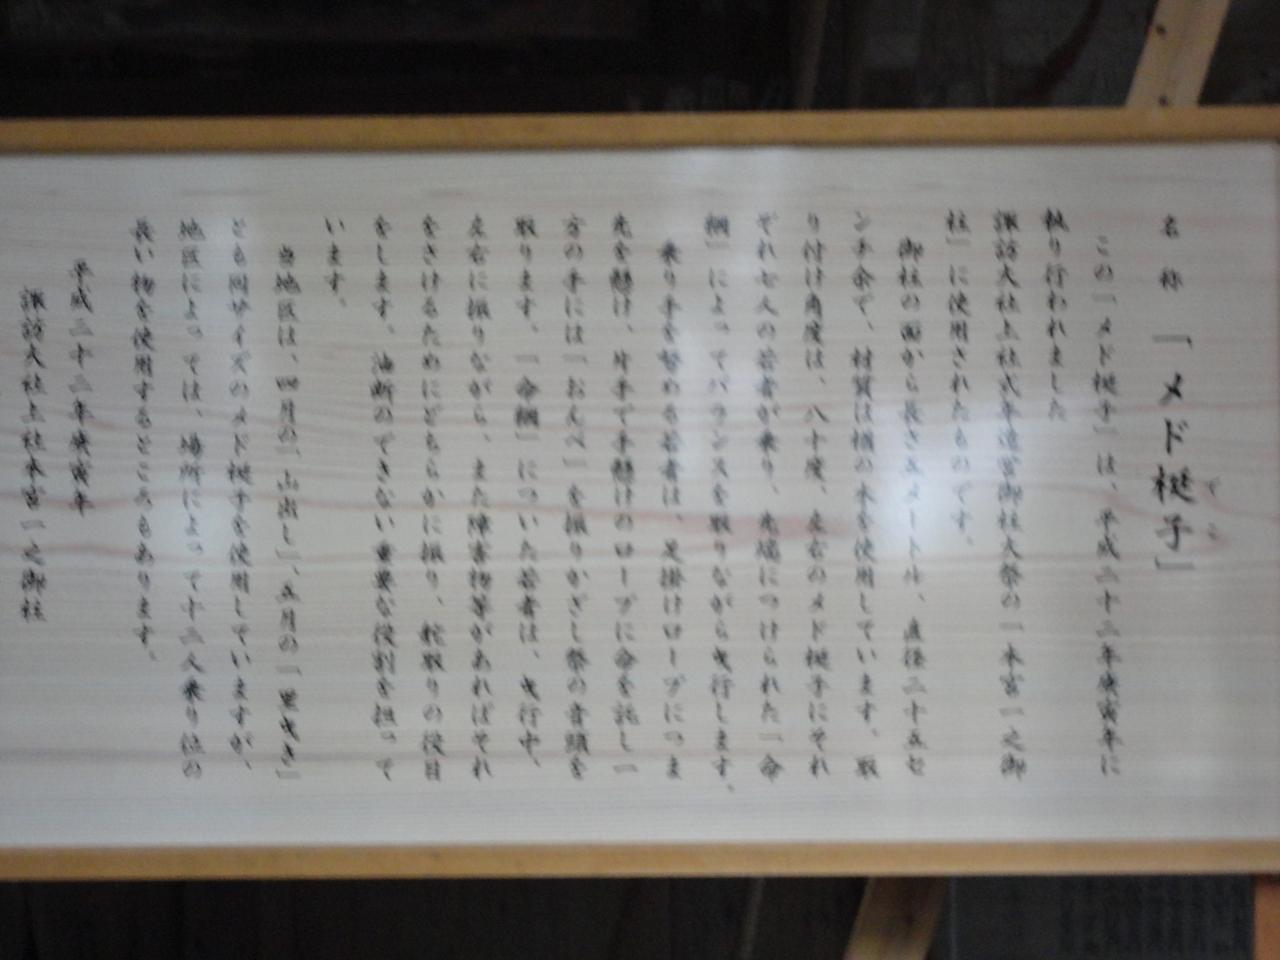 名称 「メド梃子」
てこ
この「メド梃子」は、平成二十二年庚寅年に
執り行われました
諏訪大社上社式年造営御柱大祭の「本宮一之御
柱」に使用されたものです。
御柱の面から長さ五メートル、直径二十五セ
ンチ余で、材質は楢の木を使用しています。取
り付け角度は、八十度、左右のメド梃子にそれ
ぞれ七人の若者が乗り、先端につけられた「命
綱」によってバランスを取りながら曳行します。
乗り手を努める若者は、足掛けロープにつま
先を懸け、片手で手懸けのロープに命を託し一
方の手には「おんべ」を振りかざし祭の音頭を
取ります。「命綱」についた若者は、曳行中、
左右に振りながら、また障害物等があればそれ
をさけるためにどちらかに振り、舵取りの役目
をします。油断のできない重要な役割を担って
います。
当地区は、四月の「山出し」、五月の「里曳き」
とも同サイズのメド梃子を使用していますが、
地区によっては、場所によって十二人乗り位の
長い物を使用するところもあります。
平成二十二年庚寅年
諏訪大社上社本宮一之御柱